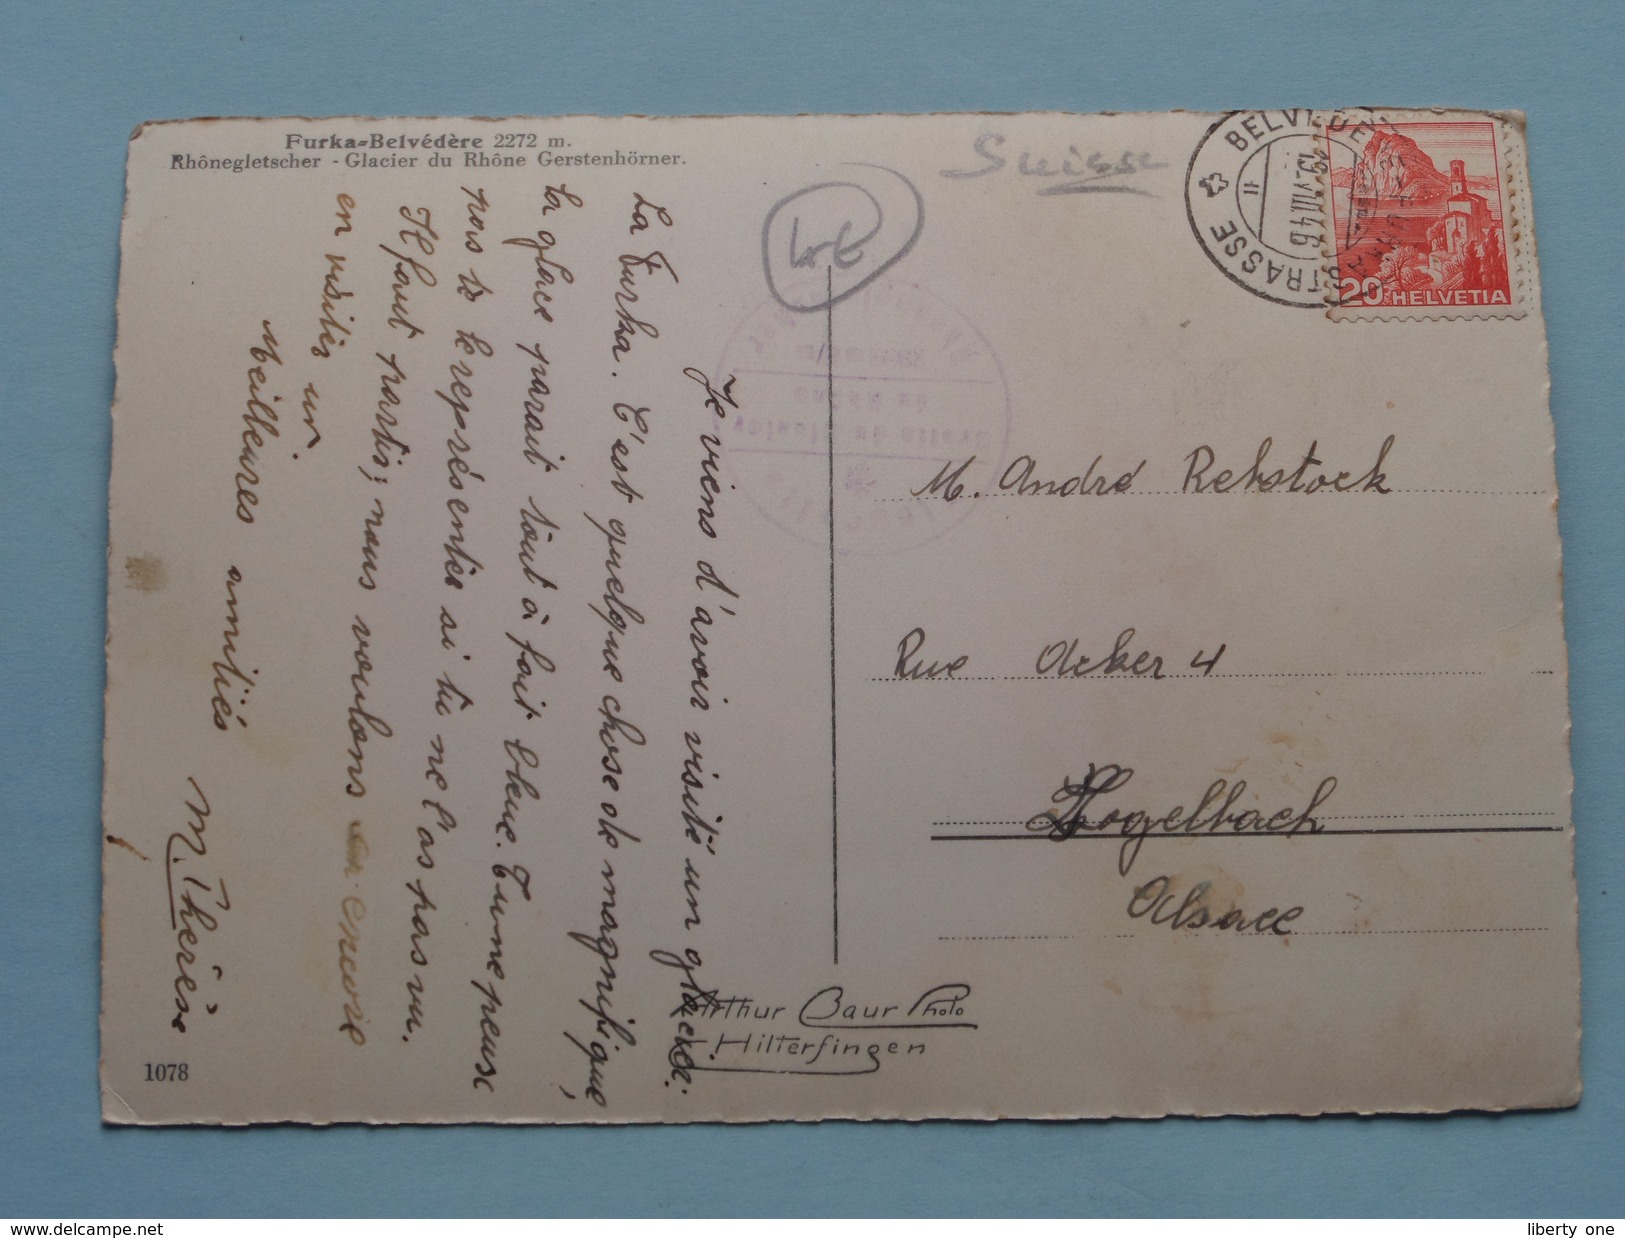 Furka-Belvédère 2272 m.
Rhônegletscher - Glacier du Rhône Gerstenhörner.
Suisse
BELVEDERE
STRASSE
19.VIII.46
20 HELVETIA
Je viens d'avoir visité un glacier.
La Furka. C'est quelque chose de magnifique,
la glace parait tout à fait bleue. Tu ne peux
pas te le représenter si tu ne l'as pas vu.
Il faut partir, nous voulons encore
en visiter un.
Meilleures amitiés
M. Thérèse
M. André Rebstock
Rue Acker 4
Logelbach
Alsace
Arthur Baur Photo
Hilterfingen
1078
delcampe.net
liberty one